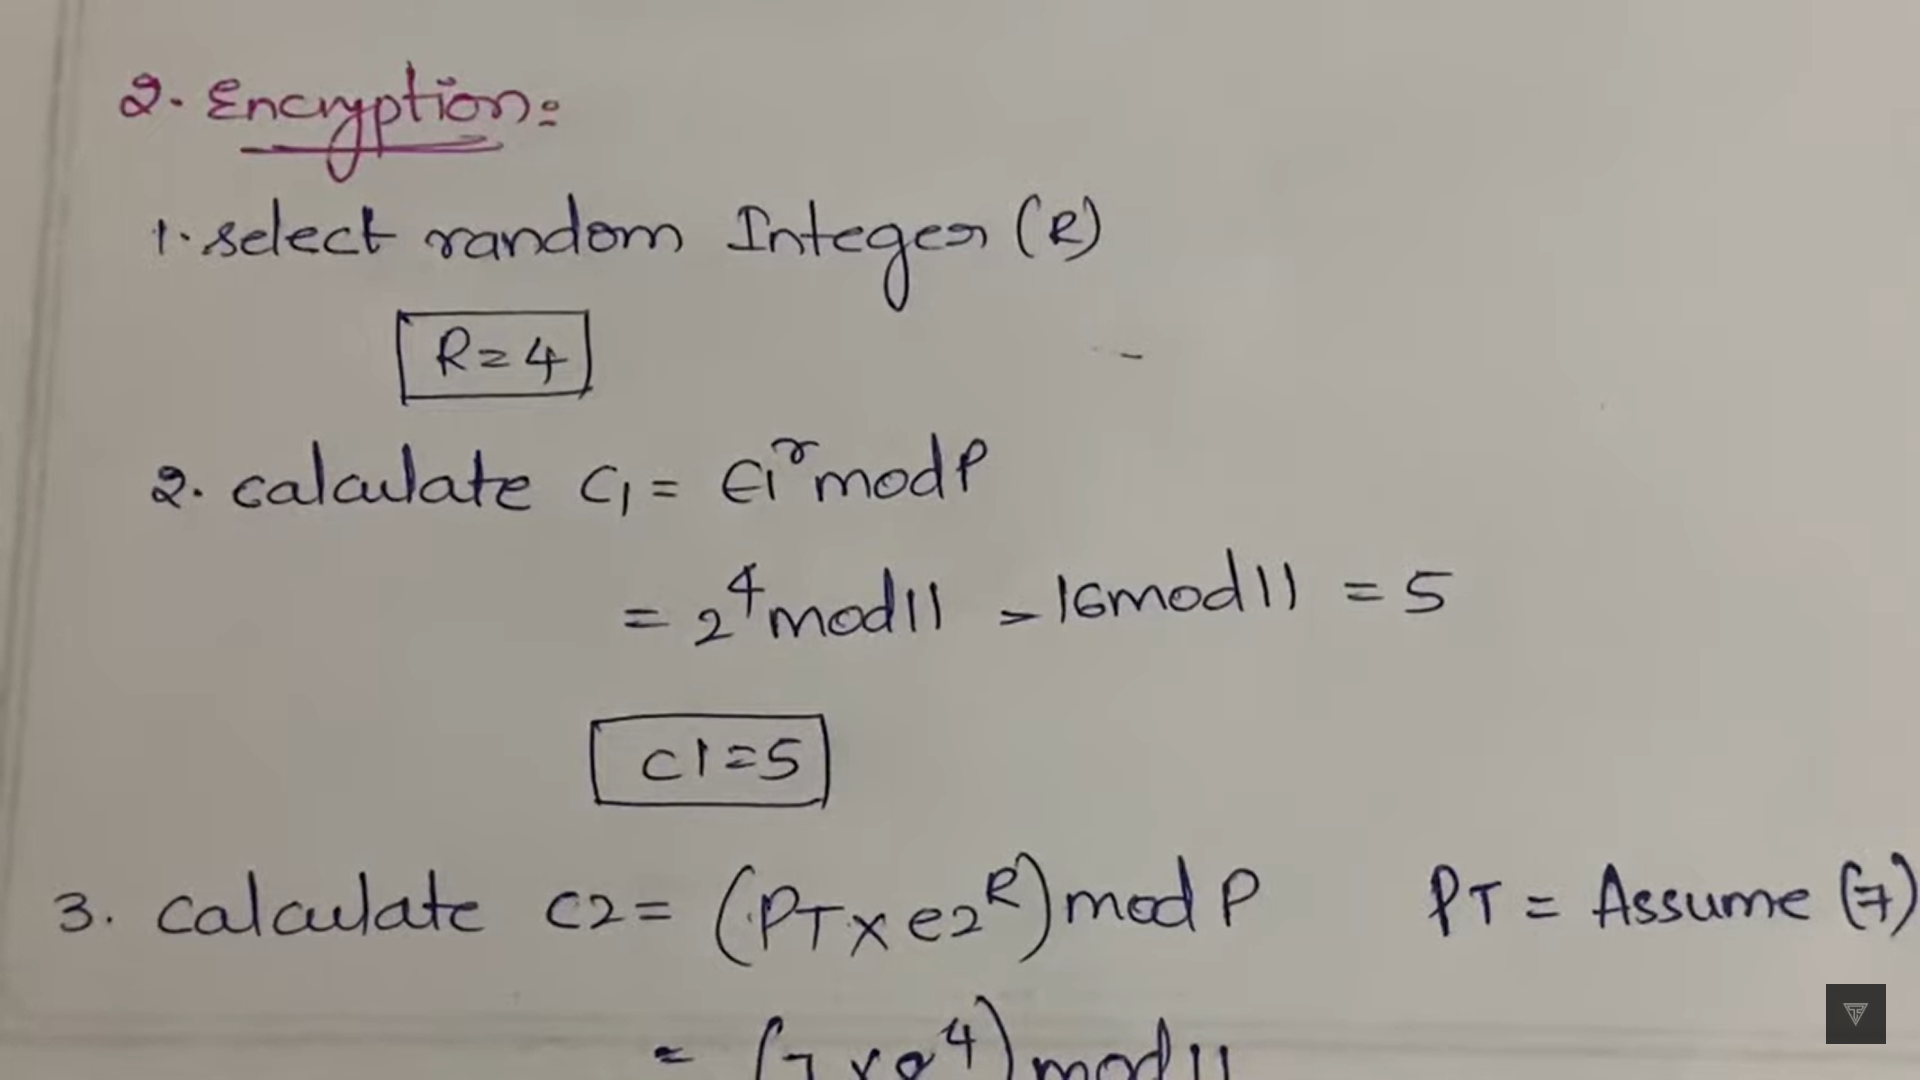 2. Encryption:
1. select random Integer (R)
R=4
2. calculate C1 = E1^r mod P
= 2^4 mod 11 = 16 mod 11 = 5
C1=5
3. calculate C2= (PT x e2^R) mod P PT = Assume (7)
= (7 x   ^4) mod 11